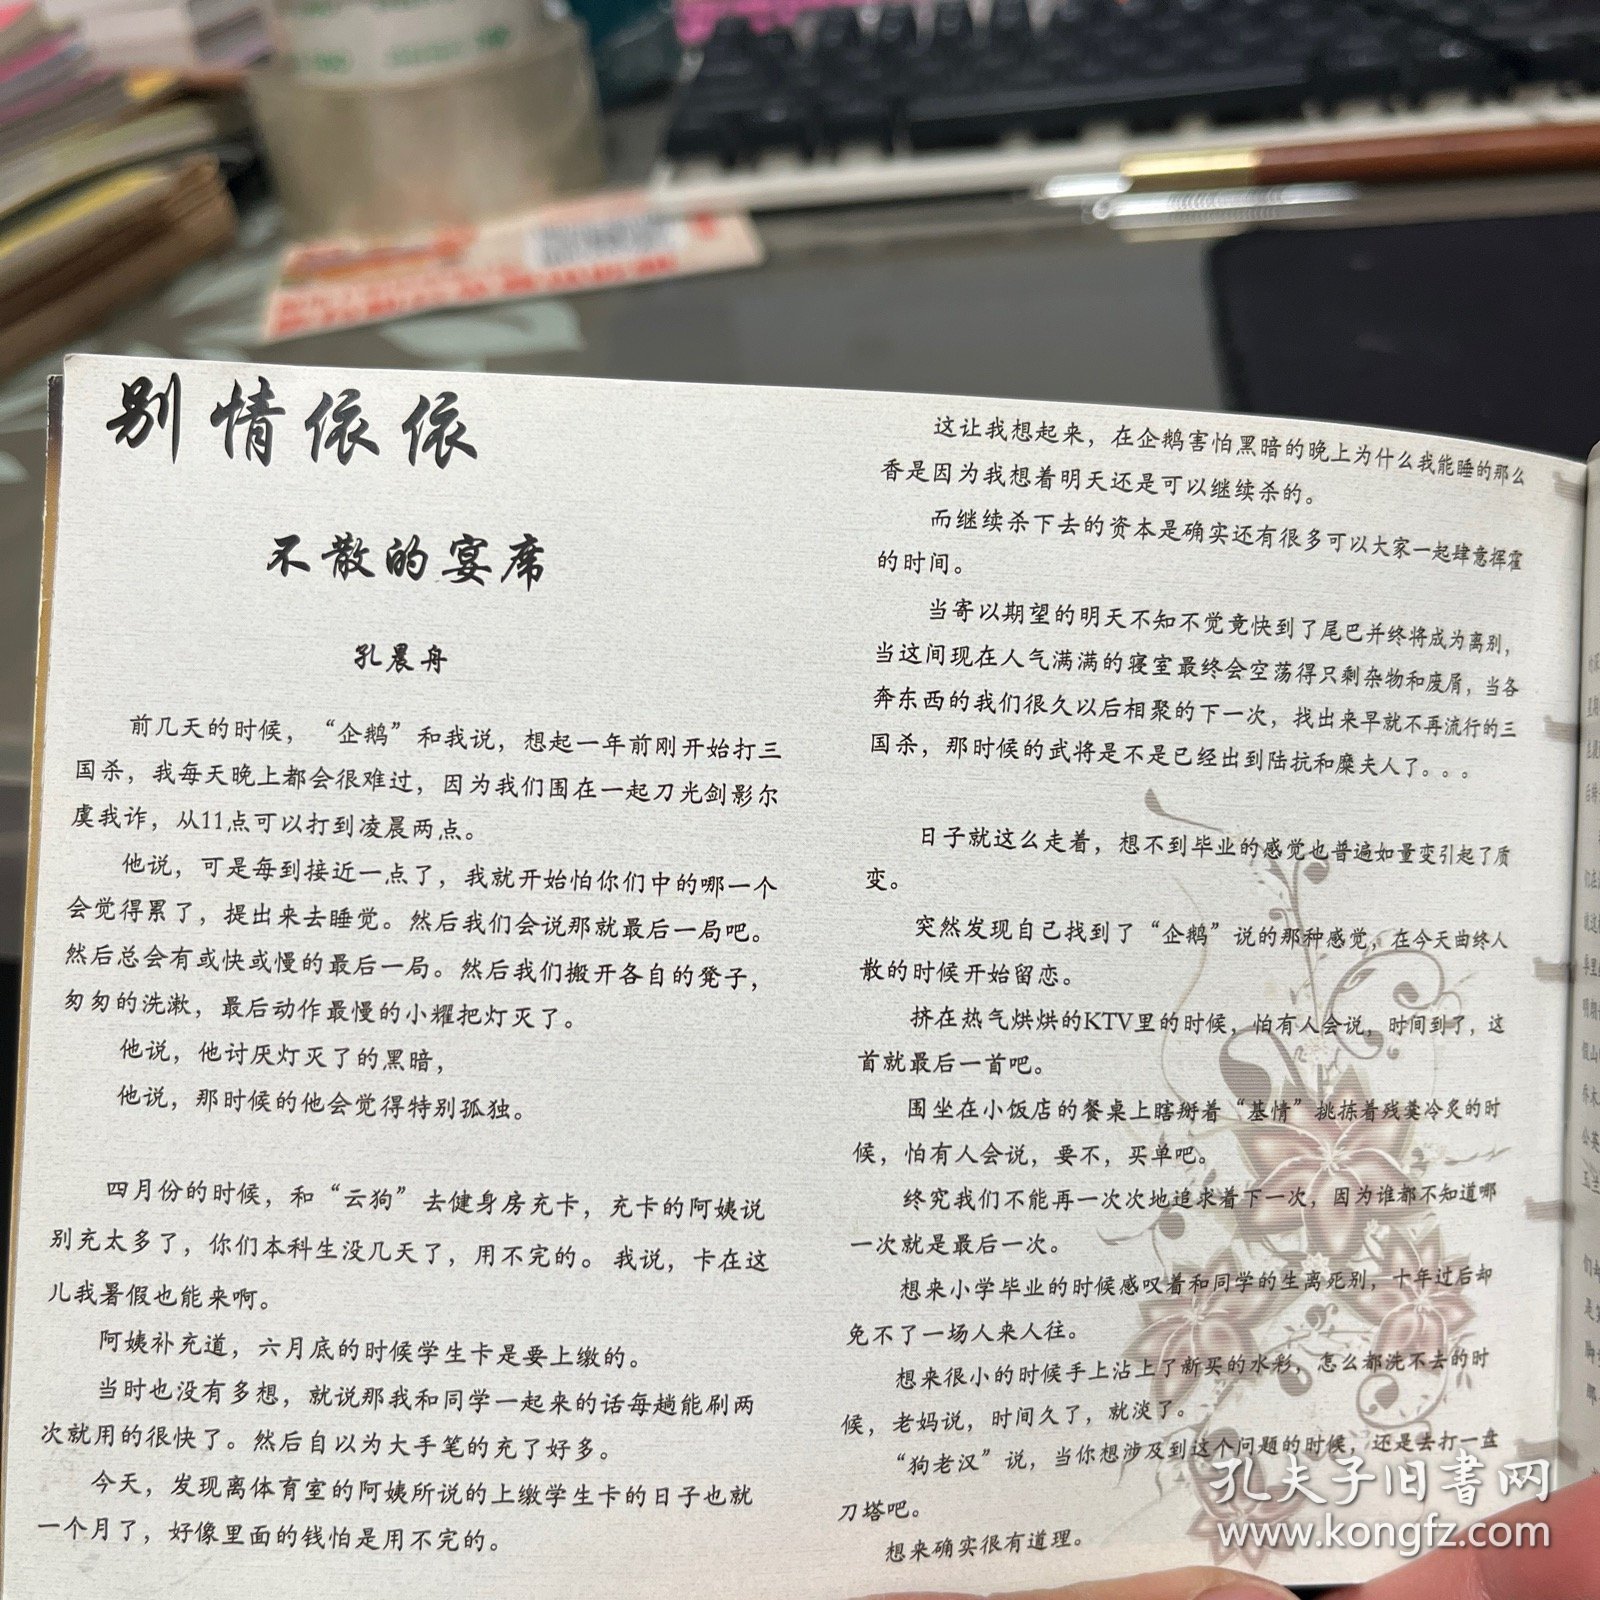 别情依依
不散的宴席
孔晨舟
前几天的时候，“企鹅”和我说，想起一年前刚开始打三
国杀，我每天晚上都会很难过，因为我们围在一起刀光剑影尔
虞我诈，从11点可以打到凌晨两点。
他说，可是每到接近一点了，我就开始怕你们中的哪一个
会觉得累了，提出来去睡觉。然后我们会说那就最后一局吧。
然后总会有或快或慢的最后一局。然后我们搬开各自的凳子，
匆匆的洗漱，最后动作最慢的小耀把灯灭了。
他说，他讨厌灯灭了的黑暗，
他说，那时候的他会觉得特别孤独。
四月份的时候，和“云狗”去健身房充卡，充卡的阿姨说
别充太多了，你们本科生没几天了，用不完的。我说，卡在这
儿我暑假也能来啊。
阿姨补充道，六月底的时候学生卡是要上缴的。
当时也没有多想，就说那我和同学一起来的话每趟能刷两
次就用的很快了。然后自以为大手笔的充了好多。
今天，发现离体育室的阿姨所说的上缴学生卡的日子也就
一个月了，好像里面的钱怕是用不完的。
这让我想起来，在企鹅害怕黑暗的晚上为什么我能睡的那么
香是因为我想着明天还是可以继续杀的。
而继续杀下去的资本是确实还有很多可以大家一起肆意挥霍
的时间。
当寄以期望的明天不知不觉竟快到了尾巴并终将成为离别，
当这间现在人气满满的寝室最终会空荡得只剩杂物和废屑，当各
奔东西的我们很久以后相聚的下一次，找出来早就不再流行的三
国杀，那时候的武将是不是已经出到陆抗和糜夫人了。。。
日子就这么走着，想不到毕业的感觉也普遍如量变引起了质
变。
突然发现自己找到了“企鹅”说的那种感觉，在今天曲终人
散的时候开始留恋。
挤在热气烘烘的KTV里的时候，怕有人会说，时间到了，这
首就最后一首吧。
围坐在小饭店的餐桌上瞎掰着“基情”挑拣着残羹冷炙的时
候，怕有人会说，要不，买单吧。
终究我们不能再一次次地追求着下一次，因为谁都不知道哪
一次就是最后一次。
想来小学毕业的时候感叹着和同学的生离死别，十年过后却
免不了一场人来人往。
想来很小的时候手上沾上了新买的水彩，怎么都洗不去的时
候，老妈说，时间久了，就淡了。
“狗老汉”说，当你想涉及到这个问题的时候，还是去打一盘
刀塔吧。
想来确实很有道理。
孔夫子旧书网
www.kongfz.com